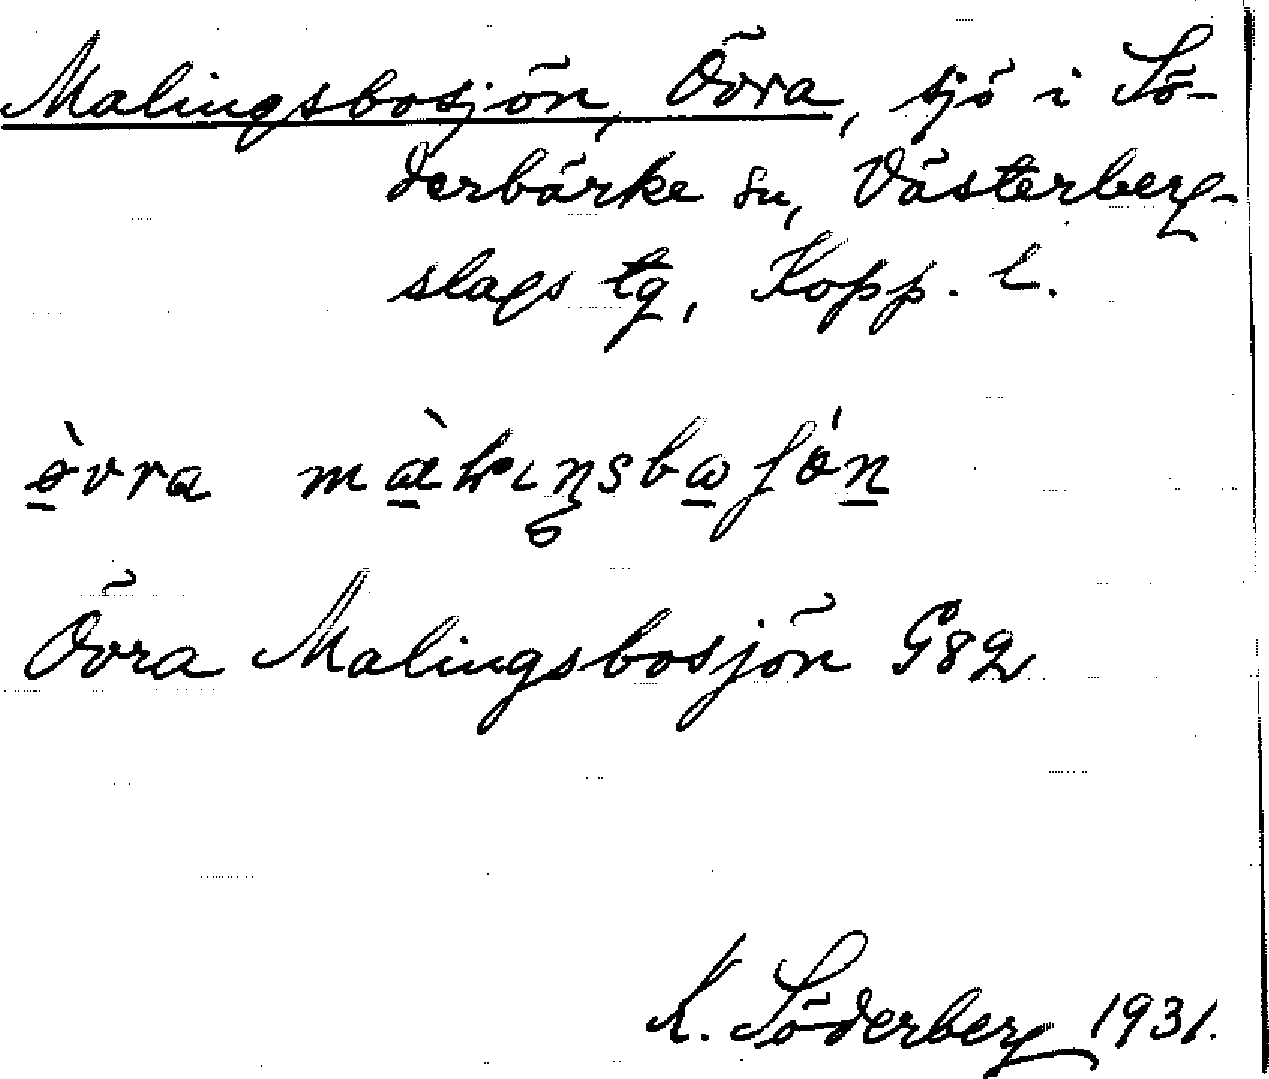 Malingsbosjön, Övra, sjö i Sö-
derbärke sn, Västerberg-
slags tg, Kopp. l.
övra
Övra Malingsbosjön G82
K. Söderberg 1931.